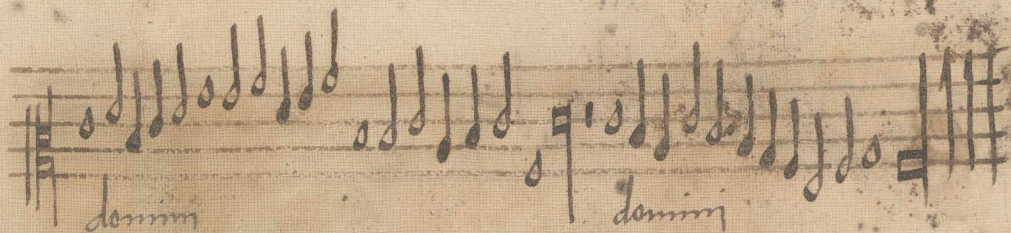 domini domini